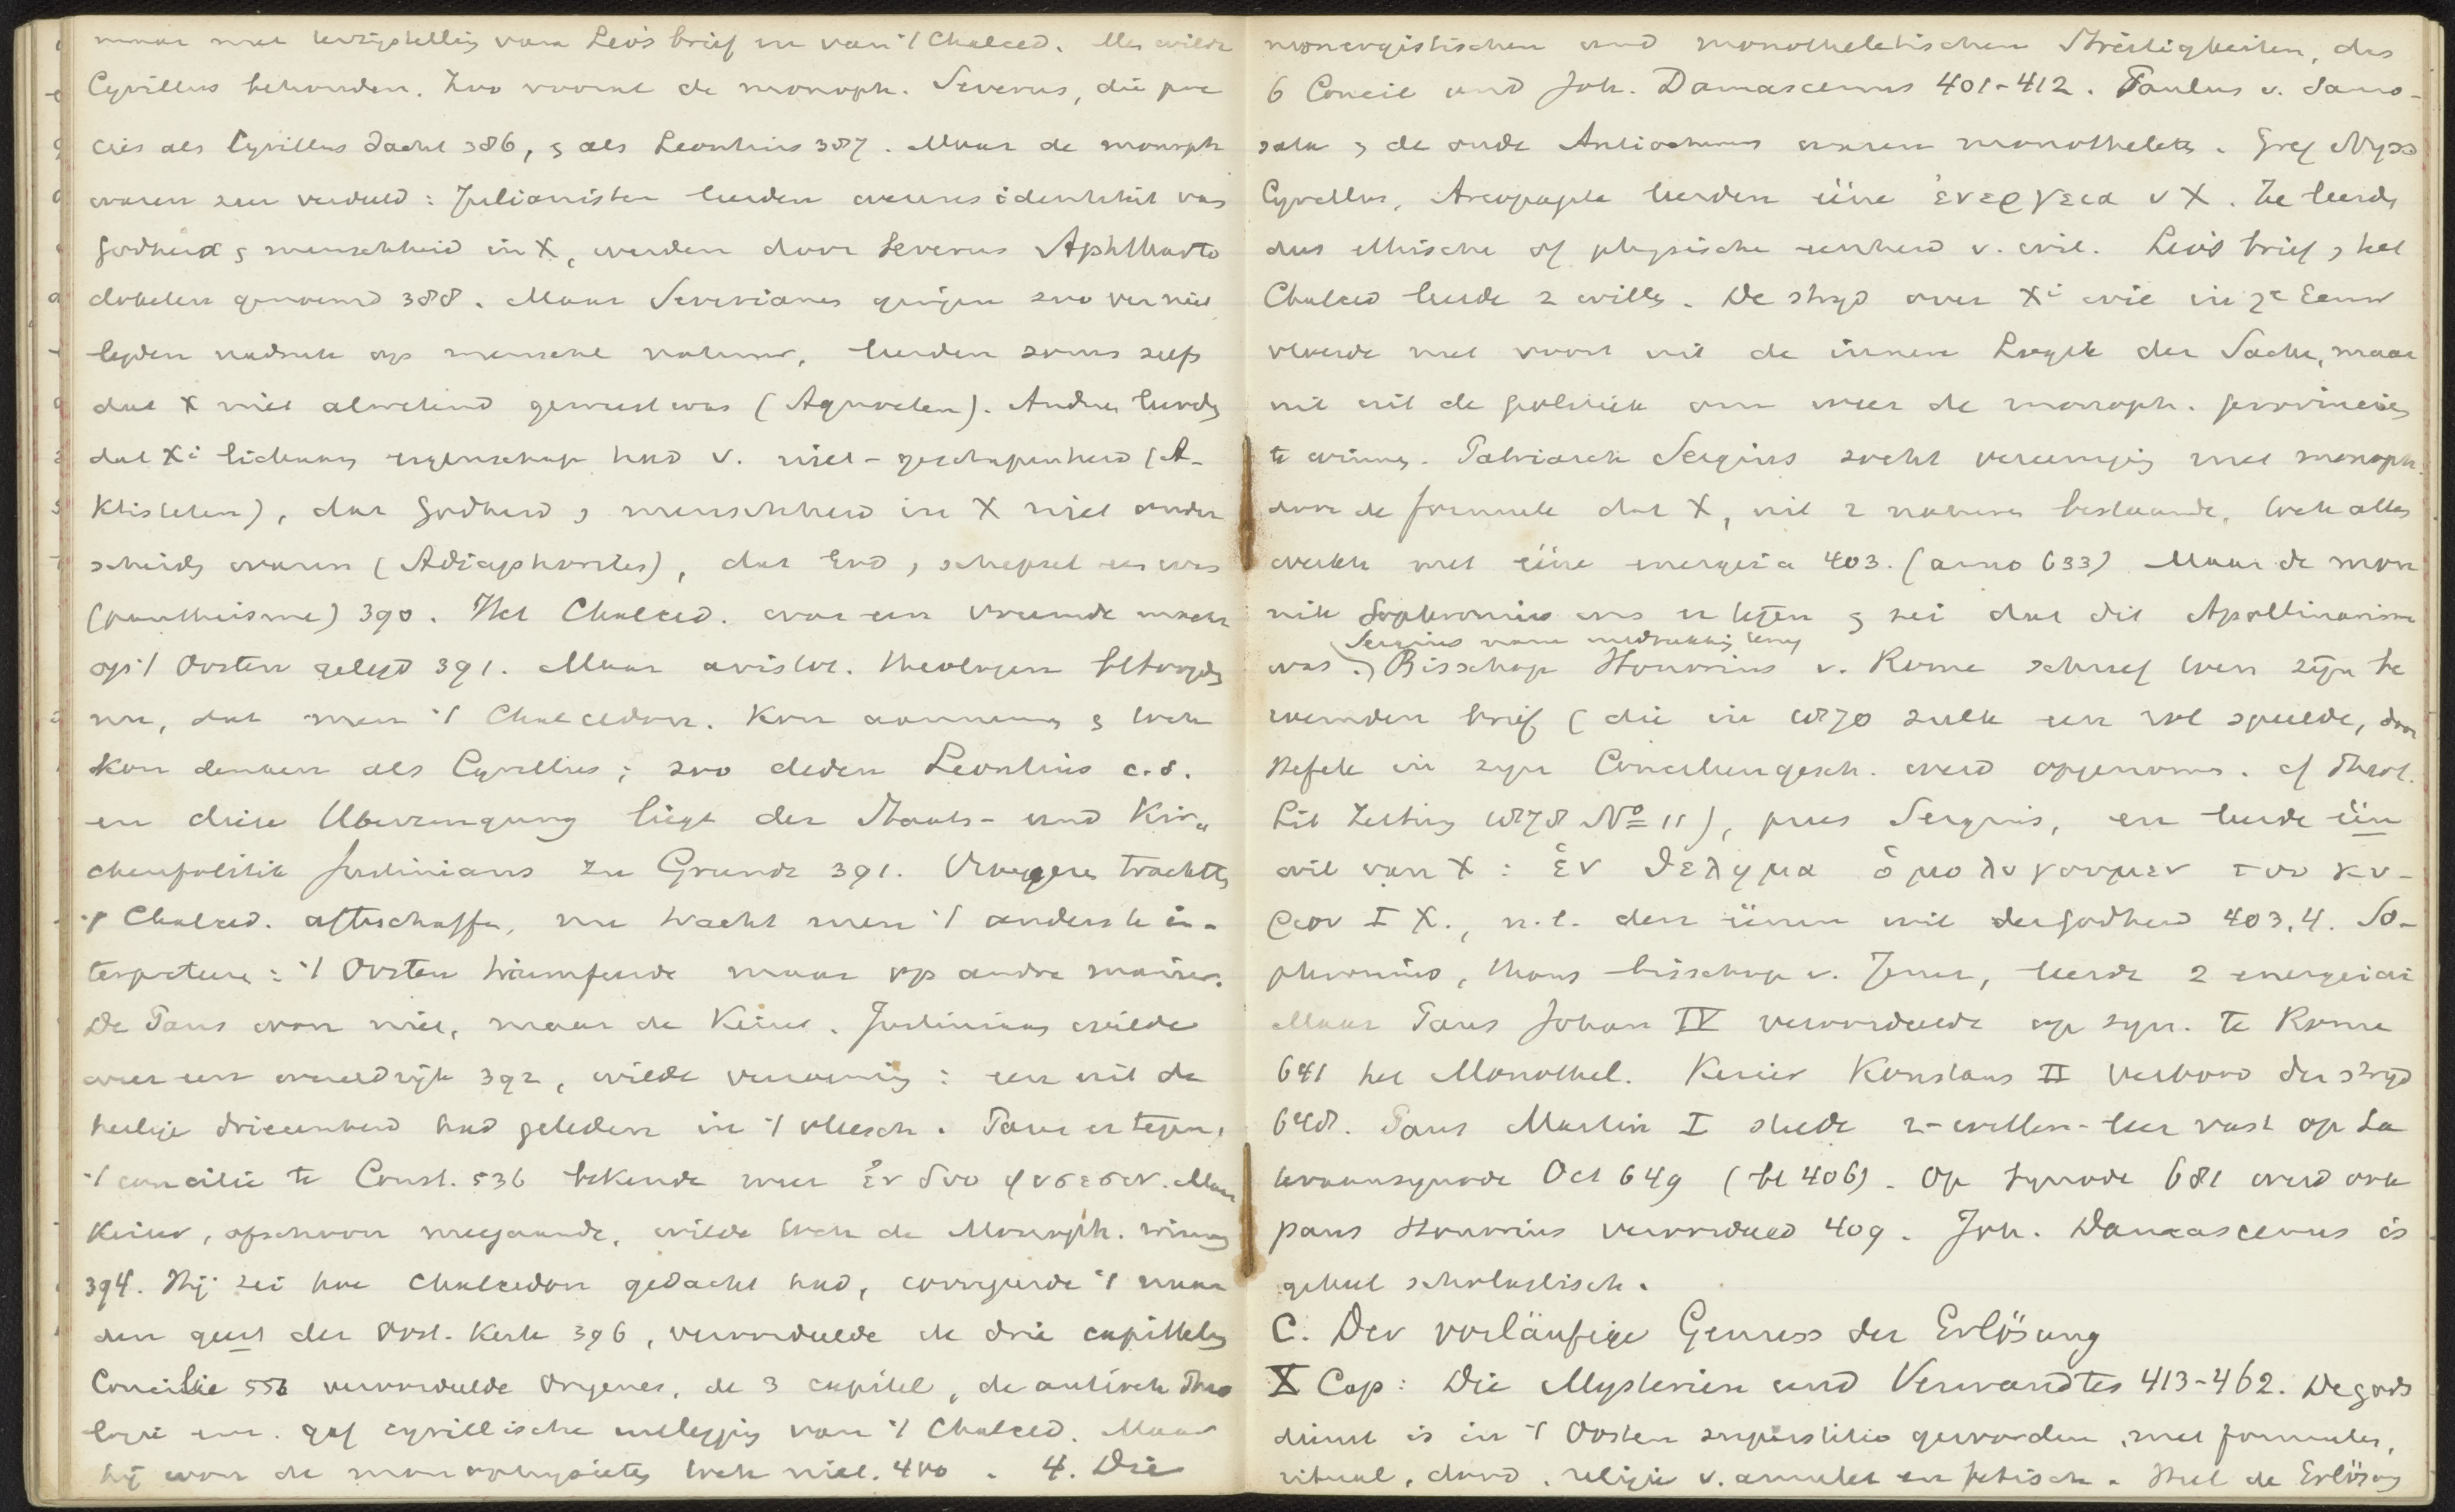 maar met terzijstelling van Leo's brief en van 't Chalced. Men wilde
Cyrillus behouden. Zoo vooral de monoph. Severus, die pre
cies als Cyrillus dacht 386, & als Leontius 387. Maar de monoph
waren zeer verdeeld: Julianisten leerden wezens identiteit van
godheid & menschheid in X, werden door Severus Aphtharto
doketen genoemd 388. Maar Severianen gingen zoo ver niet
legden nadruk op mensche natuur, leerden soms zelfs
dat X niet alwetend geweest was (Agnoeten). Andere leerden
dat Xi lichaam eigenschap had v. niet-geschapenheid (A-
ktisteten), dat godheid & menschheid in X niet onder
scheiden waren (Adiaphorites), dat God & schepsel een was
(pantheisme) 390. Het Chalced. was een vreemde macht
op 't Oosten gelegd 391. Maar aristot. theologen betoogden
nu, dat men 't Chalcedon. kon aannemen & toch
kon denken als Cyrillus; zoo deden Leontius c.s.
en diese Uberzeugung liegt der Staats- und Kir„
chenpolitik Justinians zu Grunde 391. Vroegere trachtten
't Chalced. afteschaffen, nu tracht men 't anders te in-
terpreteren: 't Oosten triumfeerde maar op andre manier.
De Paus won niet, maar de Keizer. Justinianus wilde
weer een wereldrijk 392, wilde vereeniging: een uit de
heilige drieeenheid had geleden in 't vleesch. Paus er tegen,
't concilie te Const. 536 bekende weer ἐν δυο φυσεσιν. Maar
Keizer, ofschoon meegaande, wilde toch de Monoph. winnen
394. Hij zei hoe Chalcedon gedacht had, corrigeerde 't naar
den geest der Oost. Kerk 396, veroordeelde de drie capittelen
Concilie 553 veroordeelde Origenes, de 3 capitel, de antioch Theo
logie enz. gaf cyrillische uitlegging van 't Chalced. Maar
hij won de monophysieten toch niet. 400. 4. Die
monergistischen und monotheletischen Streitigkeiten, das
6 Concil und Joh. Damascenus 401-412. Paulus v. Samo-
sata & de oude Antiochenen waren monotheleten. Greg Nyss
Cyrillus, Areopagite leerden ééne ἐνεργεια v X. Ze leerden
dus ethische of physische eenheid v. wil. Leo's brief & het
Chalced leerde 2 willen. De strijd over Xi wil in 7e Eeuw
vloeide niet voort uit de innere Logik der Sache, maar
uit de politiek om weer de monoph. provincies
te winnen. Patriarch Sergius zocht vereeniging met monoph.
door de formule dat X, uit 2 naturen bestaande, toch alles
werkte met ééne energeia 403. (anno 633) Maar de mon
nik Sophronius was er tegen & zei dat dit Apollinarisme
Sergius nam uitdrukking terug
was. Bisschop Honorius v. Rome schreef toen zijn be
roemden brief (die in 1870 zulk een rol speelde, door
Hefele in zijn Conciliengesch. werd opgenomen. cf Theol.
Lit Zeitung 1878 No 11), prees Sergius, en leerde één
wil van X: ἑν θεληµα ὁµολογουµεν του κυ-
ριου I X., n.l. den éénen wil der godheid 403,4. So-
phronius, thans bisschop v. Jeruz, leerde 2 energeiai
Maar Paus Johan IV veroordeelde op syn. te Rome
641 het Monothel. Keizer Konstans II verbood den strijd
648. Paus Martin I stelde 2-willen-leer vast op La
teraansynode Oct 649 (bl 406). Op Synode 681 werd ook
paus Honorius veroordeeld 409. Joh. Damascenus is
geheel scholastisch.
C. Der vorläufige Genuss der Erlösung
X Cap: Die Mysterien und Verwandtes 413-462. De gods
dienst is in 't Oosten superstitie geworden, met formules,
ritueel, dood, religie v. amulet en fetisch. Met de Erlösung